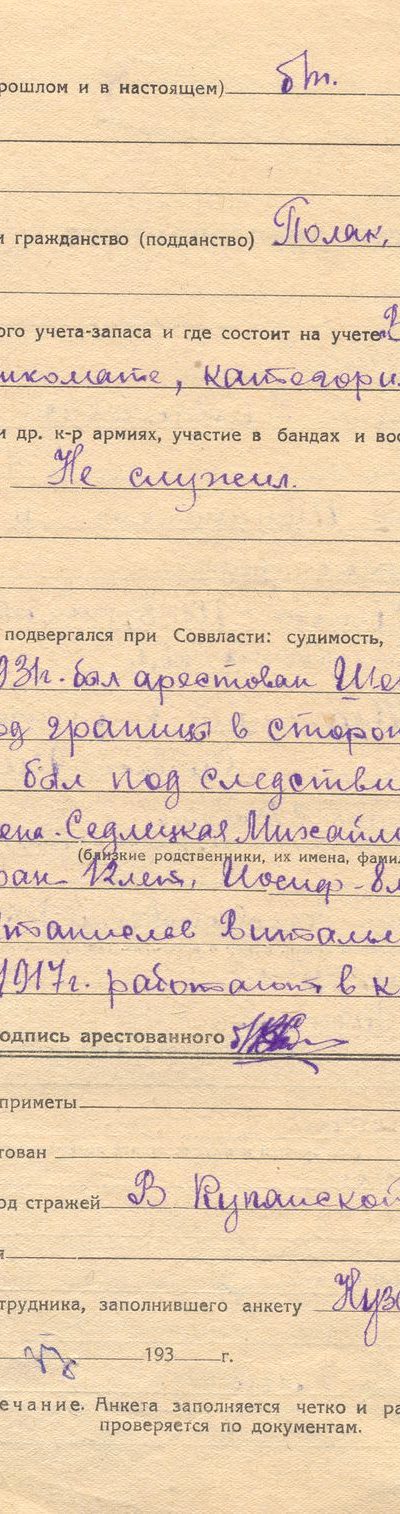 рошлом и в настоящем) б/п.
и гражданство (подданство) Поляк,
ого учета-запаса и где состоит на учете В
нкомате, категори
и др. к-р армиях, участие в бандах и вос
Не служил.
подвергался при Соввласти: судимость,
93 г. был арестован
од границы в сторон
был под следстви
ена - Седлецкая Михайл
(близкие родственники, их имена, фамил
12 лет, Иосиф - 8 л
Станислав Виталье
1917г. работают в к
одпись арестованного
приметы
тован
од стражей В Купянской
я
трудника, заполнившего анкету
193 г.
ечание. Анкета заполняется четко и ра
проверяется по документам.